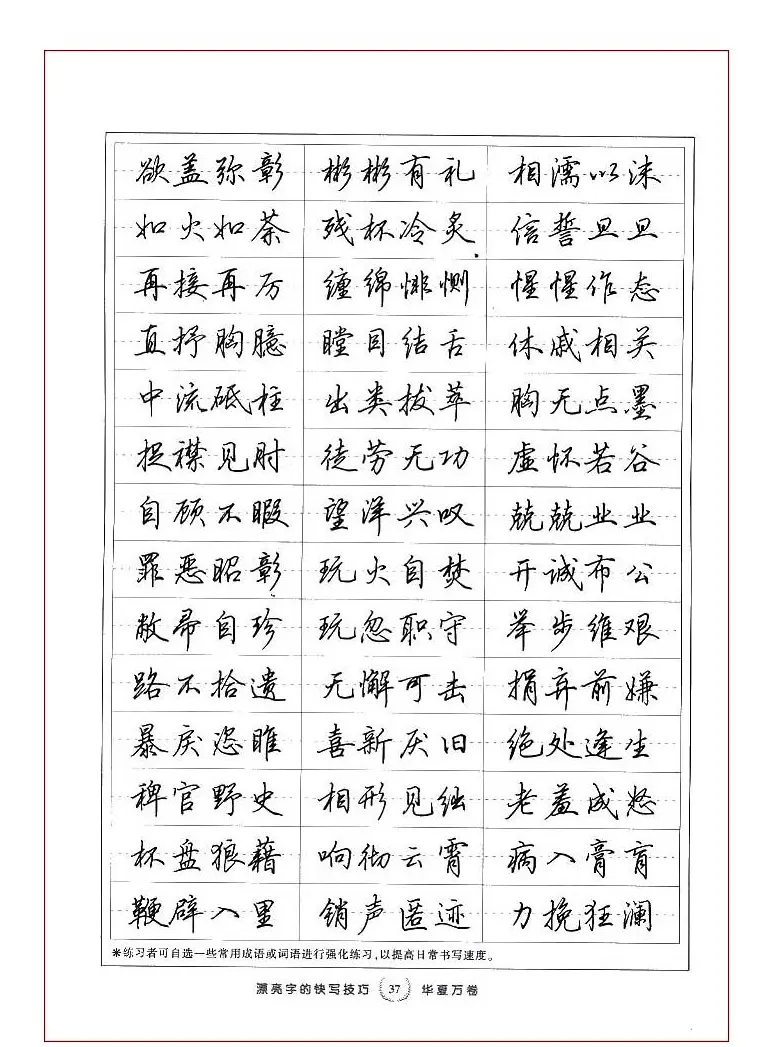 欲盖弥彰 彬彬有礼 相濡以沫
如火如荼 残杯冷炙 信誓旦旦
再接再厉 缠绵悱恻 惺惺作态
直抒胸臆 瞠目结舌 休戚相关
中流砥柱 出类拔萃 胸无点墨
捉襟见肘 徒劳无功 虚怀若谷
自顾不暇 望洋兴叹 兢兢业业
罪恶昭彰 玩火自焚 开诚布公
敝帚自珍 玩忽职守 举步维艰
路不拾遗 无懈可击 捐弃前嫌
暴戾恣睢 喜新厌旧 绝处逢生
稗官野史 相形见绌 老羞成怒
杯盘狼藉 响彻云霄 病入膏肓
鞭辟入里 销声匿迹 力挽狂澜
*练习者可自选一些常用成语或词语进行强化练习,以提高日常书写速度。
漂亮字的快写技巧 37 华夏万卷